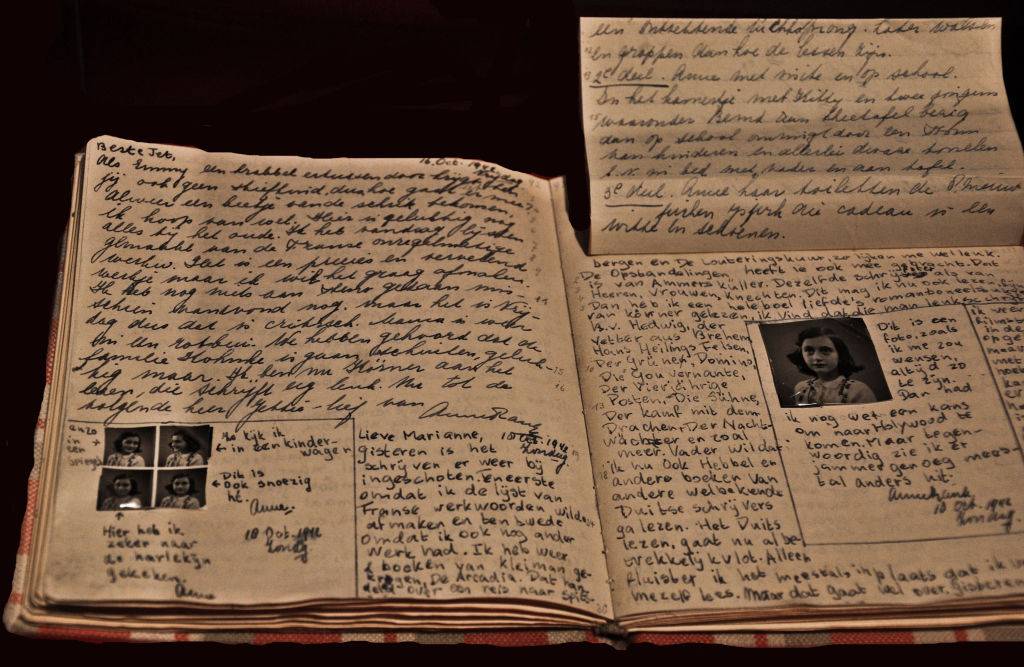 een ontzettende
en grappen dan hoe de lessen zijn.
2e deel. Anne met visite en op school.
In het kamertje met Kitty en twee jongens
waaronder Bernd aan theetafel bezig
dan op school omringd door een
kinderen en allerlei dwaze
b.v. in bed met vader en aan tafel.
3e deel. Anne haar toiletten de
cadeau is een
witte en schoenen.
Beste Jet,
16 Oct. 1942
Als Emmy een krabbel
jij ook geen stiefkind, dus hoe gaat het ermee?
Alweer een beetje van de schrik bekomen,
ik hoop van wel. Hier is gelukkig nu
alles bij het oude. Ik heb vandaag lijsten
gemaakt van de Franse onregelmatige
werkw. Het is een precies en vervelend
werkje maar ik wil het graag afmaken.
Ik heb nog niets aan steno gedaan mis-
schien vanavond nog, maar het is Vrij-
dag dus dat is critisch. Mama is weer
in een robbui. We hebben gehoord dat de
familie is gaan schuilen, geluk-
kig maar. Ik ben nu Körner aan het
lezen, die schrijft erg leuk. Nu tot de
volgende keer liefs van
Anne Frank
anzo
in
een
spiegel
Zo kijk ik
in een kinder-
wagen
Dit is
ook snoezig
hè.
Anne.
Hier heb ik
zeker naar
de harlekijn
gekeken.
Anne
18 Oct. 1942
Zondag
Lieve Marianne,
18 Oct. 1942
Zondag.
gisteren is het
schrijven er weer bij
ingeschoten. Eneerste
omdat ik de lijst van
Franse werkwoorden wilde
afmaken en ten twede
omdat ik ook nog ander
werk had. Ik heb weer
2 boeken van Kleiman ge-
kregen, De Arcadia. Dat han-
deld over een reis naar Spitz-
bergen en De Louteringskuur, zo lijken me wel leuk.
De Opstandelingen heeft ie ook meegebracht. Dat
is van Ammers küller. Dezelfde schrijfster als van
Heeren, Vrouwen Knechten. Dit mag ik nu ook lezen, fijn!
Dan heb ik een heleboel liefde's romantoneeltjes
van Körner gelezen, ik vind dat die man leuk schrijft.
B.v. Hedwig, der
Vetter aus Bremen
Hans Heilings Felsen,
Der Grünen Domino,
Die Gouvernante,
Der Vierjährige
Posten, Die Sühne,
Der Kampf mit dem
Drachen, Der Nacht-
wächter en zoal
meer. Vader wil dat
ik nu ook Hebbel en
andere boeken van
andere welbekende
Duitse schrijvers
ga lezen. Het Duits
lezen, gaat nu al be-
trekkelijk vlot. Alleen
fluister ik het meestal inplaats dat ik in
mezelf lees. Maar dat gaat wel over. Gisteren
Dit is een
foto, zoals
ik me zou
wensen,
altijd zo
te zijn.
Dan had
ik nog wel een kans
om naar Holywood te
komen. Maar tegen-
woordig zie ik er
jammer genoeg mees-
tal anders uit.
Annefrank.
18 Oct. 1942
Zondag.